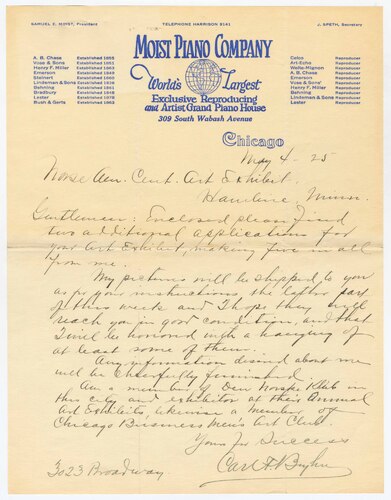 SAMUEL E. MOIST, President
TELEPHONE HARRISON 9141
J. SPETH, Secretary
MOIST PIANO COMPANY
World's Largest
Exclusive Reproducing
and Artist Grand Piano House
309 South Wabash Avenue
Chicago
A. B. Chase Established 1895
Vose & Sons Established 1851
Henry F. Miller Established 1863
Emerson Established 1849
Steinert Established
Lindeman & Sons Established
Behning Established 1861
Bradbury Established
Lester Established
Bush & Gerts Established
Celco Reproducer
Art-Echo Reproducer
Welte-Mignon Reproducer
A. B. Chase Reproducer
Emerson Reproducer
Vose & Sons Reproducer
Henry F. Miller Reproducer
Behning Reproducer
Lindeman & Sons Reproducer
Lester Reproducer
May 4 - 25
Norse Am. Cent. Art Exhibit.
Hamline, Minn.
Gentlemen: Enclosed please find
two additional applications for
your Art Exhibit, making five in all
from me.
My pictures will be shipped to you
as per your instructions the latter part
of this week and I hope they will
reach you in good condition, and that
I will be honored with a hanging of
at least some of them.
Any information desired about me
will be cheerfully furnished
Am a member of Den Norske Klub in
this city and exhibitor at their Annual
Art Exhibits, likewise a member of
Chicago Business Men's Art Club.
Yours for Success
Carl F.
3023 Broadway